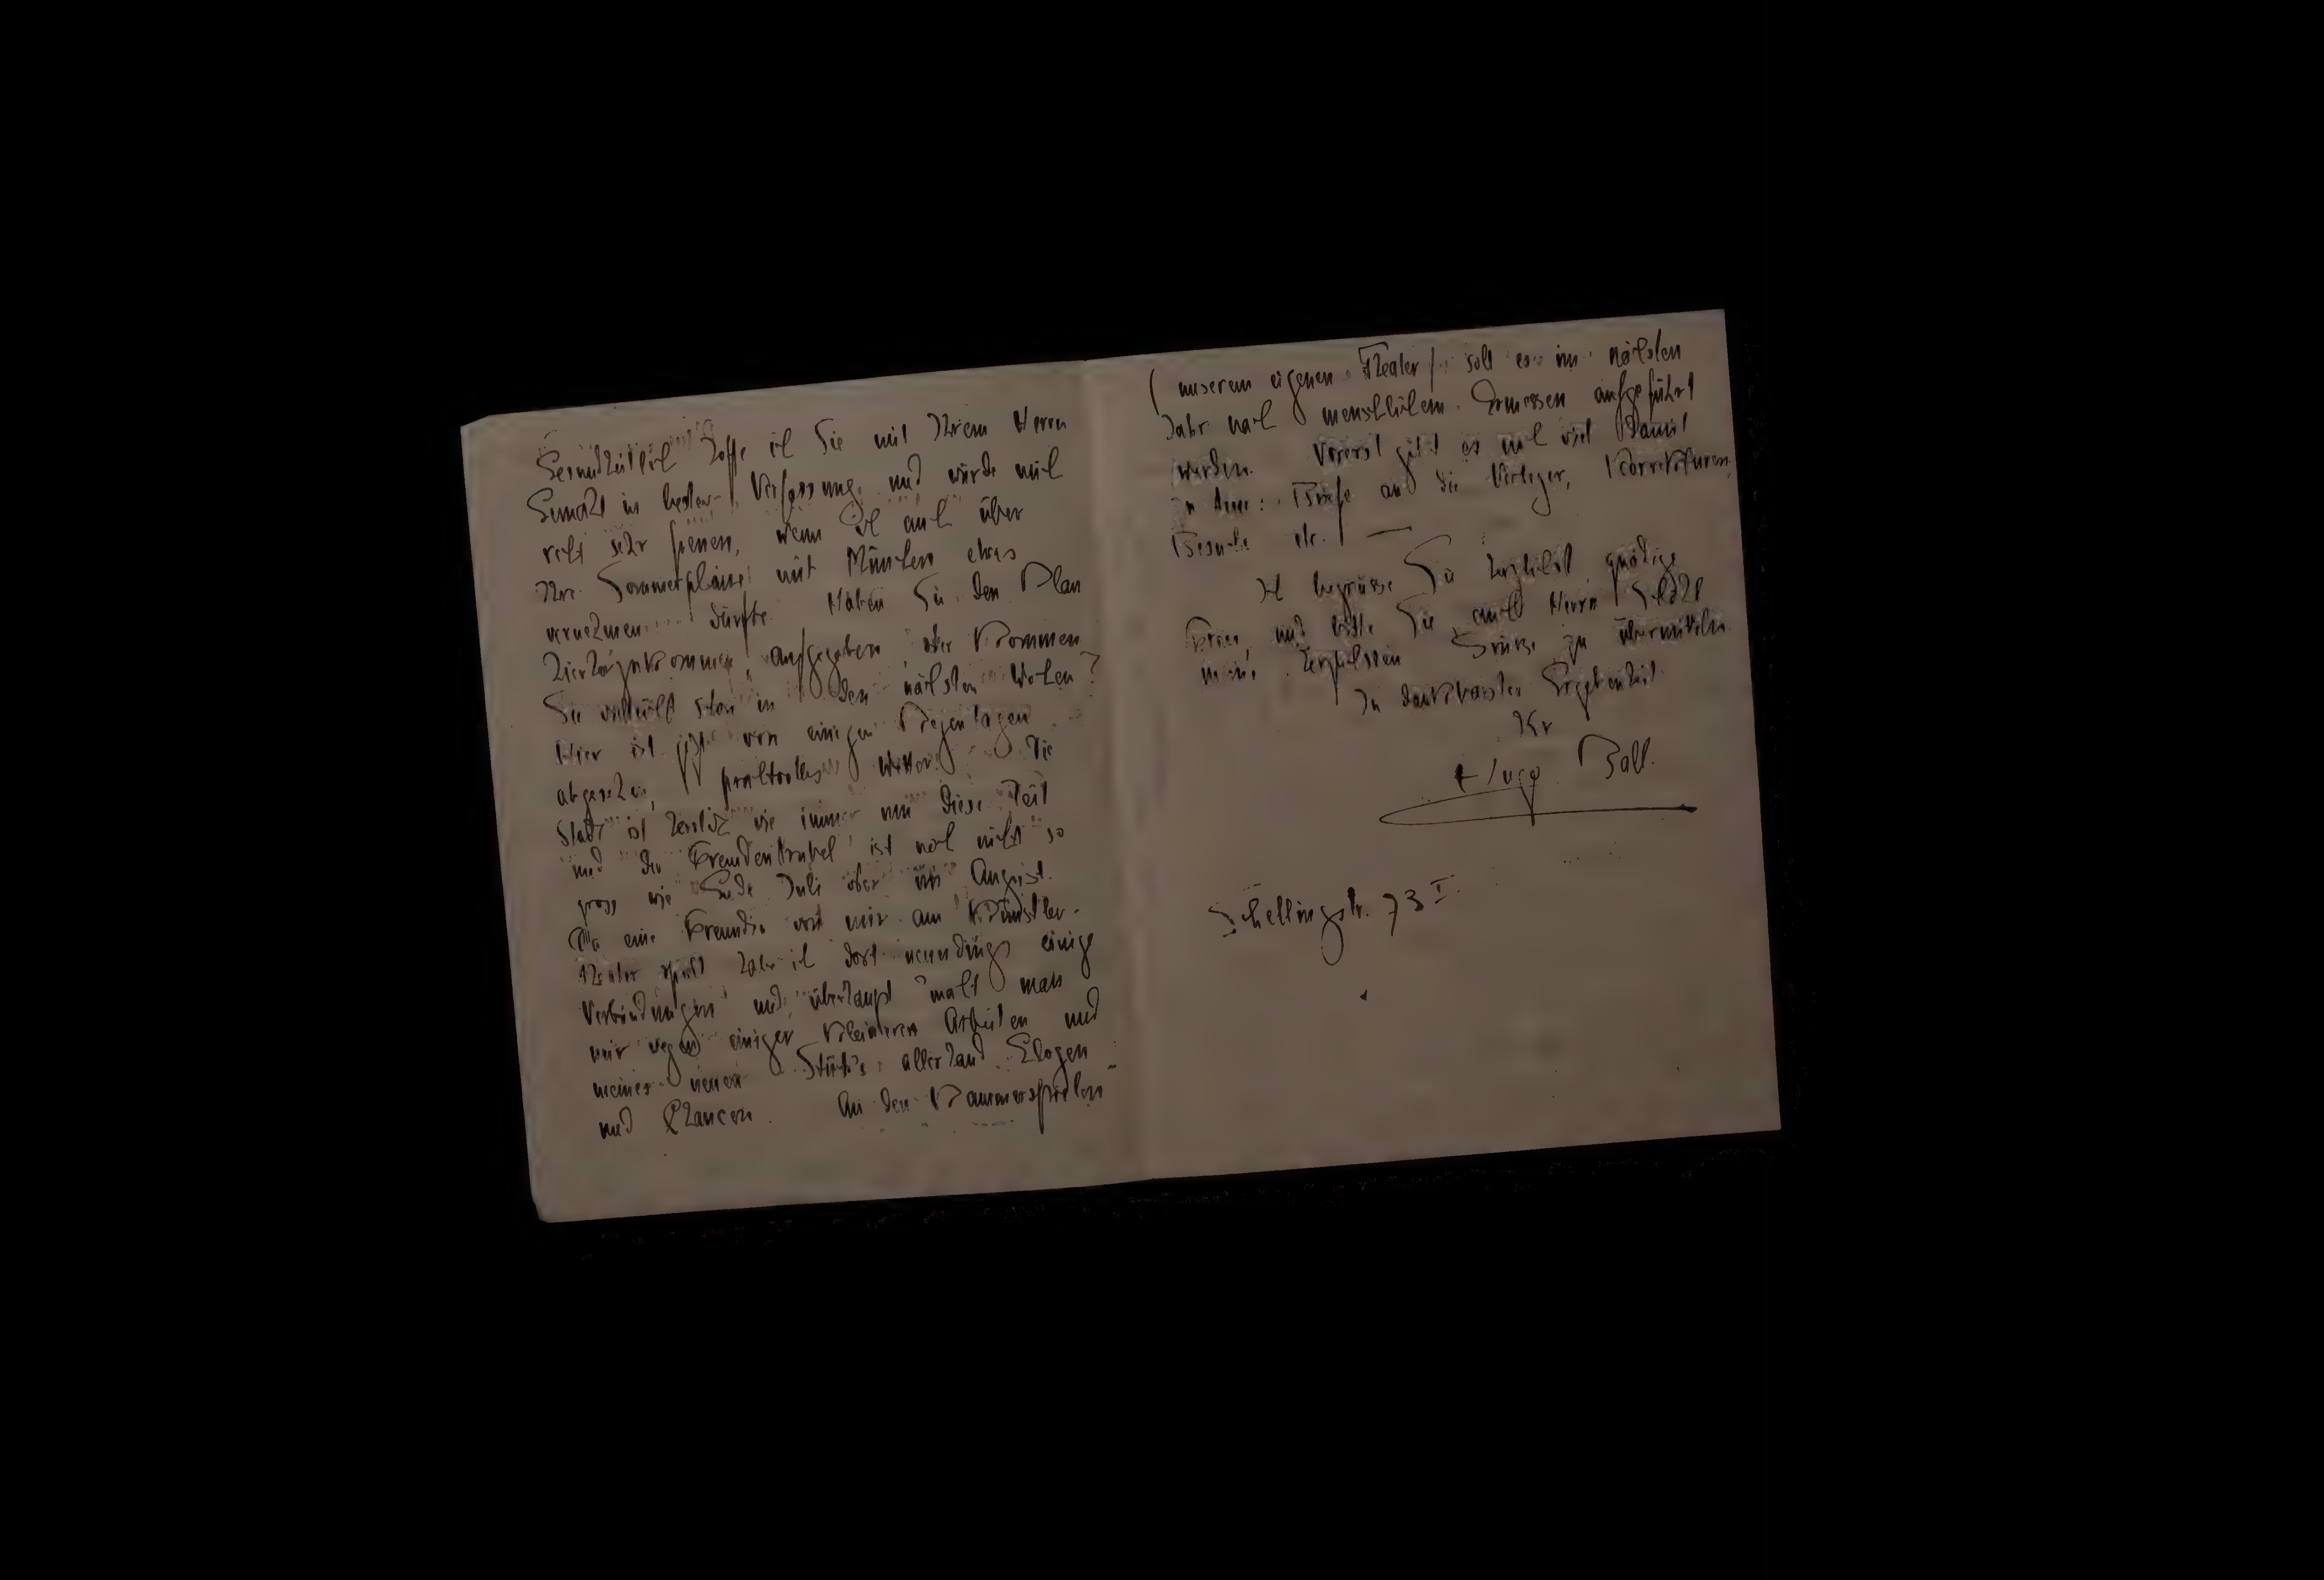 Gesundheitlich hoffe ich Sie mit Ihrem Herrn
Gemahl in bester Verfassung, und würde mich
recht sehr freuen, wenn ich auch über
Ihre Sommerpläne mit München etwas
vernehmen dürfte. Haben Sie den Plan
hierherzukommen, aufgegeben, oder kommen
Sie vielleicht schon in den nächsten Wochen?
Hier ist jetzt von einigen Regentagen
abgesehen, prachtvolles Wetter. Die
Stadt ist herrlich wie immer um diese Zeit
und der Fremdentrubel ist noch nicht so
gross wie Ende Juli oder im August.
Da eine Freundin von mir am Künstler-
theater spielt habe ich dort neuerdings einige
Verbindungen und überhaupt macht man
mir wegen einiger kleineren Arbeiten und
meines neuen Stücks allerhand Elogen
und Chancen. An den Kammerspielen
(unserem eigenen Theater) soll es im nächsten
Jahr nach menschlichem Ermessen aufgeführt
werden. Vorerst gibt es noch viel damit
zu tun: Briefe an die Verleger, Korrekturen,
Besuche etc. —
Ich begrüsse Sie herzlichst, gnädige
Frau, und bitte Sie, auch Herrn
meine herzlichsten Grüsse zu übermitteln.
In dankbarster Ergebenheit
Ihr
Hugo Ball.
Schellingstr. 73 I